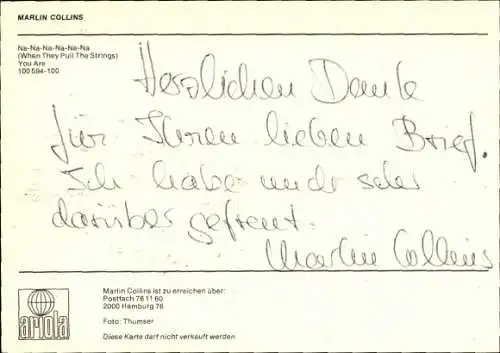 MARLIN COLLINS
Na-Na-Na-Na-Na-Na
(When They Pull The Strings)
You Are
100 594-100
Herzlichen Dank
für Ihren lieben Brief.
Ich habe mich sehr
darüber gefreut.
Marlin Collins
Marlin Collins ist zu erreichen über:
Postfach 76 11 60
2000 Hamburg 76
Foto: Thumser
Diese Karte darf nicht verkauft werden
ariola